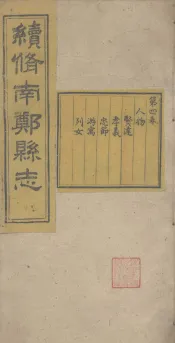 續修南鄭縣志
第四卷
人物
賢達
孝義
忠節
游寓
列女